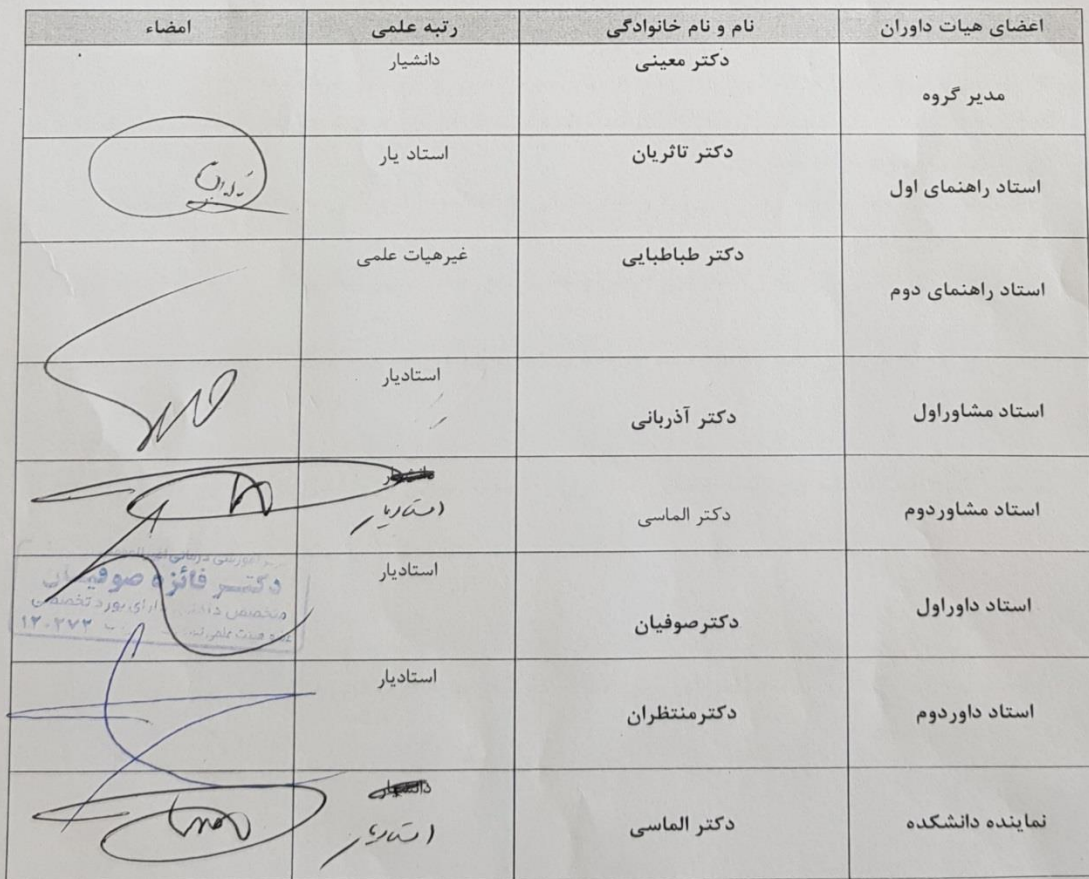 اعضای هیات داوران	نام و نام خانوادگی	رتبه علمی	امضاء
مدیر گروه	دکتر معینی	دانشیار
استاد راهنمای اول	دکتر تاثریان	استاد یار
استاد راهنمای دوم	دکتر طباطبایی	غیرهیات علمی
استاد مشاوراول	دکتر آذربانی	استادیار
استاد مشاوردوم	دکتر الماسی	دانشیار
استادیار
استاد داوراول	دکترصوفیان	استادیار
دکتر فائزه صوفیان
متخصص داخلی دارای بورد تخصصی
۱۲۰۲۷۲
استاد داوردوم	دکترمنتظران	استادیار
نماینده دانشکده	دکتر الماسی	دانشیار
استادیار